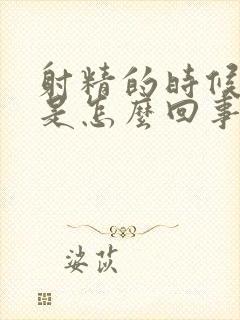 射精的時候
是怎麼回事
婆莰